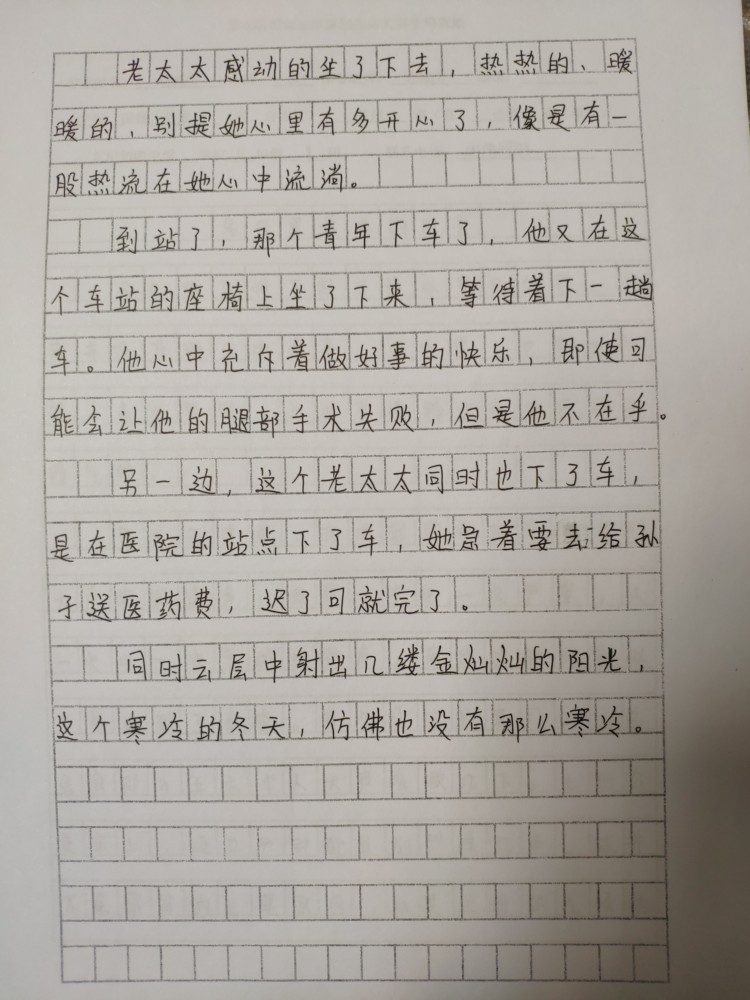 老太太感动的坐了下去，热热的、暖
暖的，别提她心里有多开心了，像是有一
股热流在她心中流淌。
到站了，那个青年下车了，他又在这
个车站的座椅上坐了下来，等待着下一趟
车。他心中充斥着做好事的快乐，即使可
能会让他的腿部手术失败，但是他不在乎。
另一边，这个老太太同时也下了车，
是在医院的站点下了车，她急着要去给孙
子送医药费，迟了可就完了。
同时云层中射出几缕金灿灿的阳光，
这个寒冷的冬天，仿佛也没有那么寒冷。